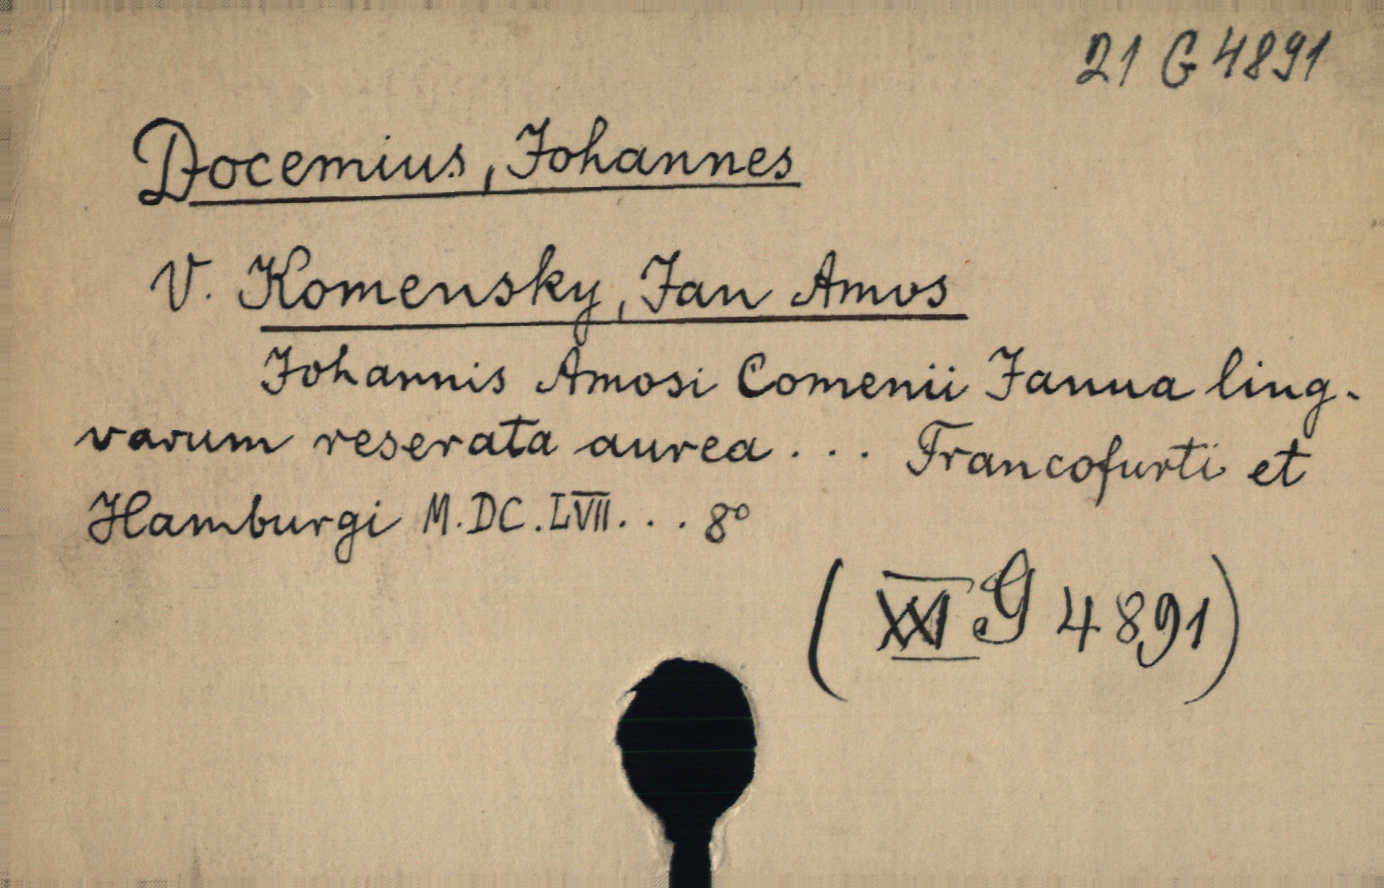 21 G 4891
Docemius, Johannes
V. Komensky, Jan Amos
Johannis Amosi Comenii Janua ling-
varum reserata aurea ... Francofurti et
Hamburgi M.DC.LVII... 8°
(XXI G 4891)